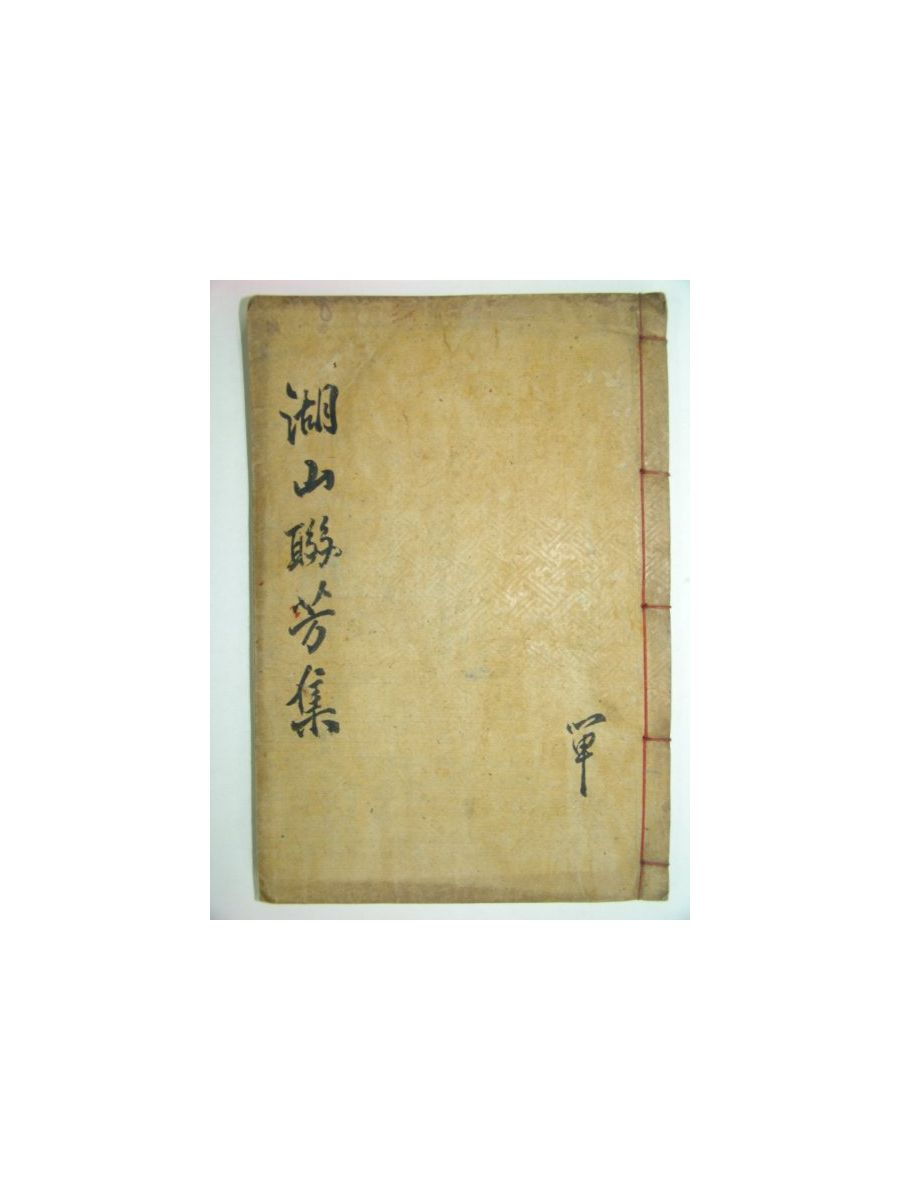 單
湖山聯芳集